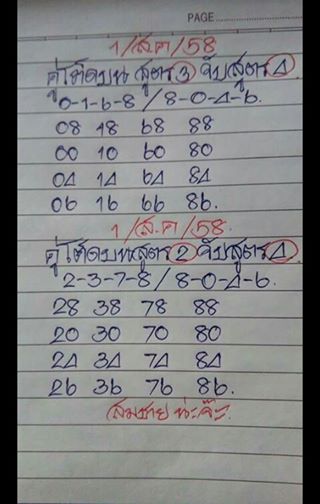 PAGE
1/ส.ค/58
คู่โต๊ดบน สูตร 3 จับสูตร 4
0-1-6-8/8-0-4-6.
08 18 68 88
00 10 60 80
04 14 64 84
06 16 66 86.
1/ส.ค/58.
คู่โต๊ดบนสูตร 2 จับสูตร 4
2-3-7-8/8-0-4-6.
28 38 78 88
20 30 70 80
24 34 74 84
26 36 76 86.
สมชาย น่ะจ๊ะ.